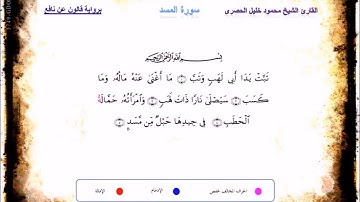 القارئ الشيخ محمود خليل الحصري
سورة المسد
برواية قالون عن نافع
بِسْمِ اللَّهِ الرَّحْمَٰنِ الرَّحِيمِ
تَبَّتْ يَدَا أَبِي لَهَبٍ وَتَبَّ ۝ مَا أَغْنَىٰ عَنْهُ مَالُهُ وَمَا
كَسَبَ ۝ سَيَصْلَىٰ نَارًا ذَاتَ لَهَبٍ ۝ وَامْرَأَتُهُ حَمَّالَةُ
الْحَطَبِ ۝ فِي جِيدِهَا حَبْلٌ مِّن مَّسَدٍ ۝
الحرف المخالف لحفص
الإدغام
الإمالة